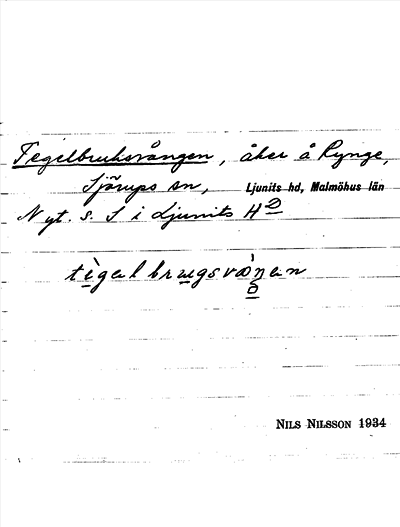 Tegelbruksvången, åker å Rynge,
Sjörups sn, Ljunits hd, Malmöhus län
Nyt. s. S i Ljunits Hd
Nils Nilsson 1934